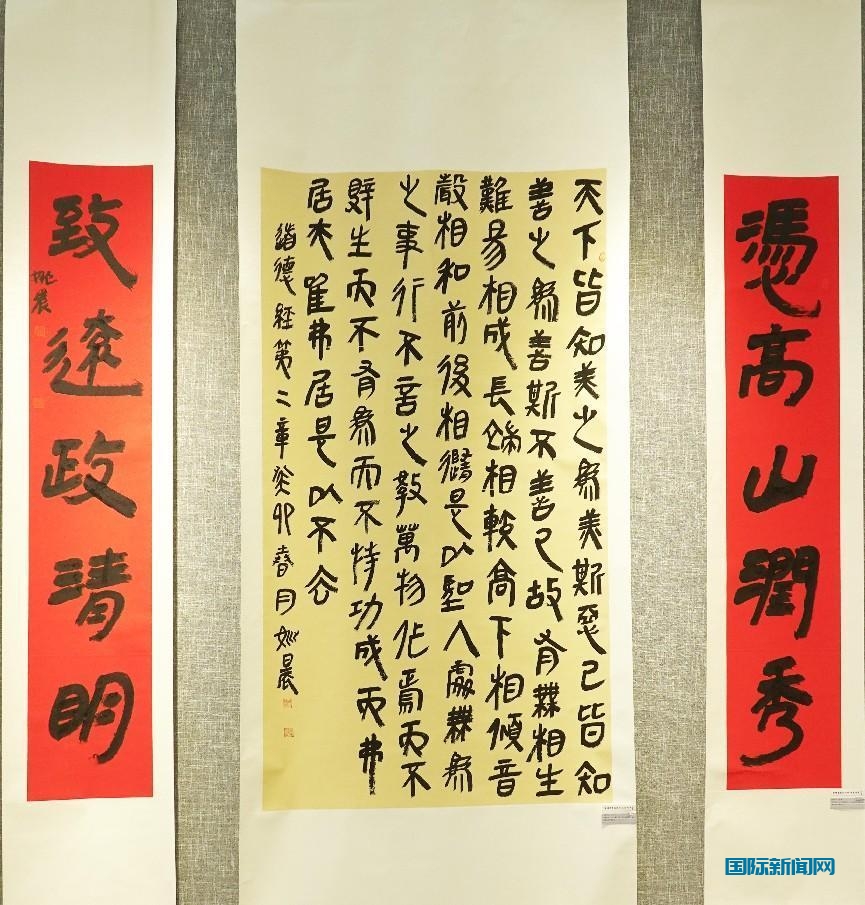 憑高山潤秀
天下皆知美之爲美斯惡已皆知
善之爲善斯不善已故有無相生
難易相成長短相較高下相傾音
聲相和前後相隨是以聖人處無爲
之事行不言之教萬物作焉而不
辭生而不有爲而不恃功成而弗
居夫唯弗居是以不去
道德經第二章癸卯春月姚晨
致遠政清明
姚晨
国际新闻网